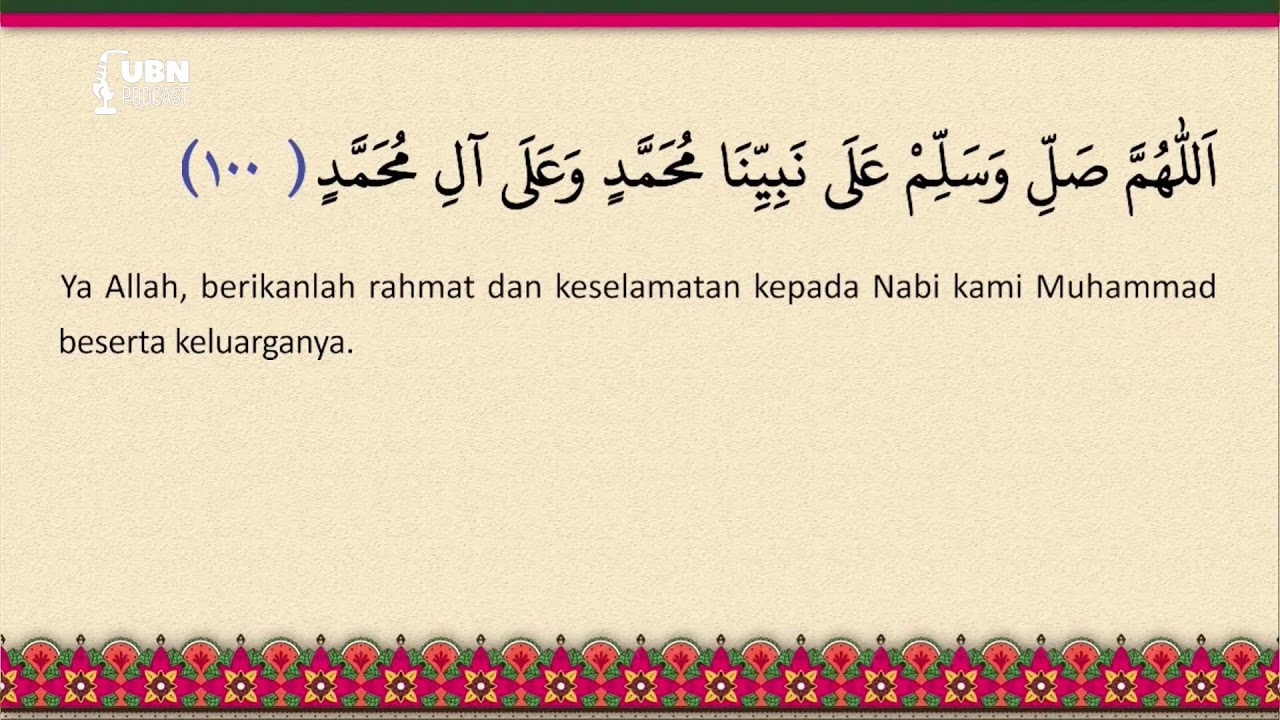 UBN
PODCAST
اَللّٰهُمَّ صَلِّ وَسَلِّمْ عَلَى نَبِيِّنَا مُحَمَّدٍ وَعَلَى آلِ مُحَمَّدٍ ( ١٠٠)
Ya Allah, berikanlah rahmat dan keselamatan kepada Nabi kami Muhammad
beserta keluarganya.